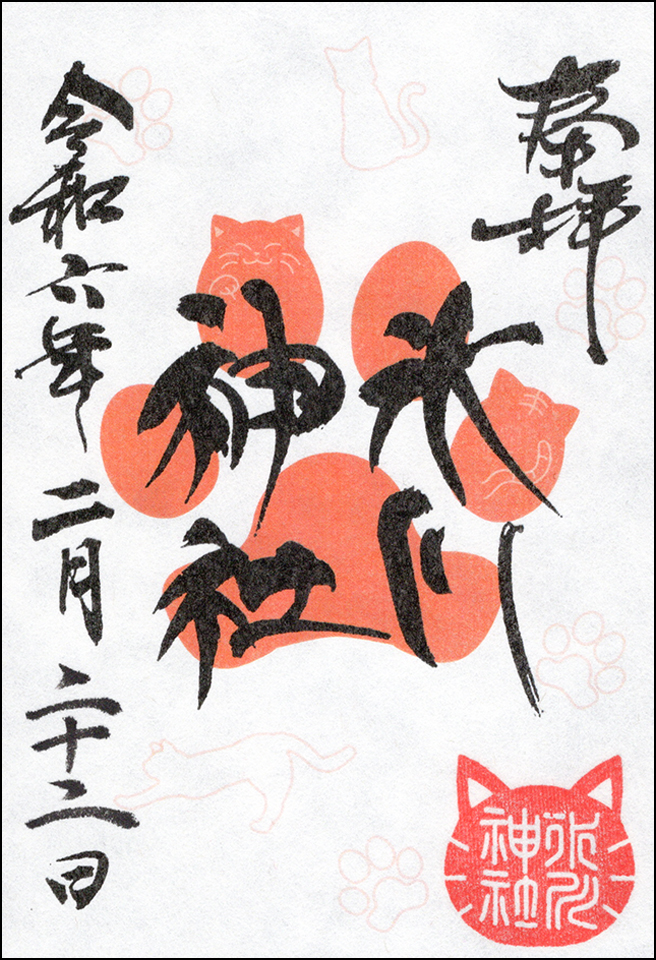 奉拝
氷川
神社
令和六年二月二十二日
氷川
神社